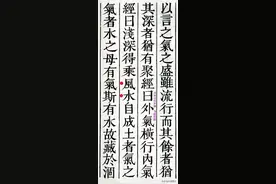 以言之氣之盛雖流行而其餘者猶
其深者猶有聚經曰外氣橫行內氣
經曰淺深得乘風水自成土者氣之
氣者水之母有氣斯有水故藏於涸